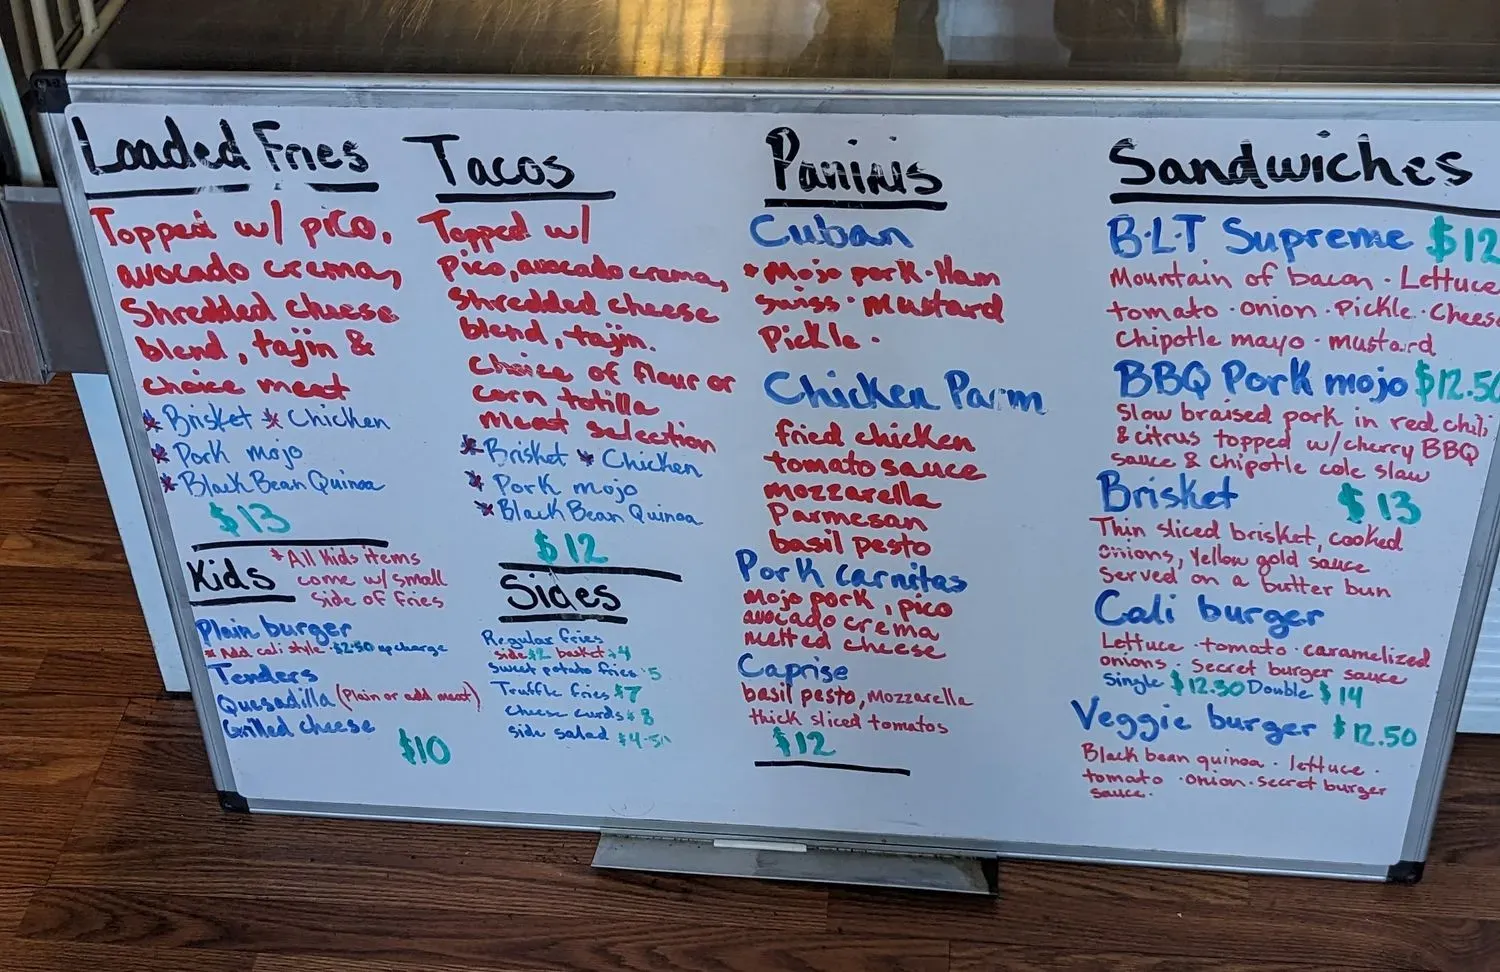 Loaded Fries
Topped w/ pico,
avocado crema,
Shredded cheese
blend, tajin &
choice meat
* Brisket * Chicken
* Pork mojo
* Black Bean Quinoa
$13
Kids
*All Kids items
come w/ small
side of fries
Plain burger
* Add cali style · $2.50 upcharge
Tenders
Quesadilla (Plain or add meat)
Grilled cheese
$10
Tacos
Topped w/
Pico, avocado crema,
Shredded cheese
blend, tajin.
Choice of flour or
corn totilla
meat selection
* Brisket * Chicken
* Pork mojo
* Black Bean Quinoa
$12
Sides
Regular fries
side $2 basket $4
Sweet potato fries · 5
Truffle fries $7
Cheese curds $8
side salad $4.50
Paninis
Cuban
* Mojo pork · Ham
swiss · mustard
Pickle ·
Chicken Parm
fried chicken
tomato sauce
mozzarella
Parmesan
basil pesto
Pork carnitas
Mojo pork, pico
avocado crema
melted cheese
Caprise
basil pesto, mozzarella
thick sliced tomatos
$12
Sandwiches
B·L·T Supreme $12
Mountain of bacon · Lettuce
tomato · onion · Pickle · Cheese
Chipotle mayo · mustard
BBQ Pork mojo $12.50
Slow braised pork in red chili
& citrus topped w/cherry BBQ
sauce & Chipotle cole slaw
Brisket $13
Thin sliced brisket, cooked
onions, Yellow gold sauce
Served on a butter bun
Cali burger
Lettuce · tomato · caramelized
onions · secret burger sauce
Single $12.50 Double $14
Veggie burger $12.50
Black bean quinoa · lettuce ·
tomato · onion · secret burger
sauce ·